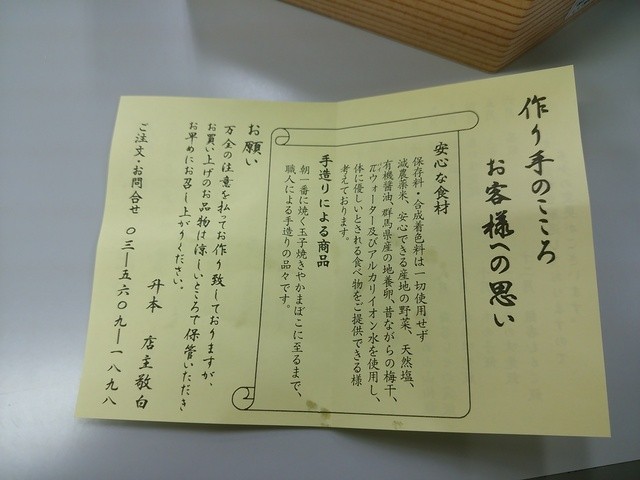 作り手のこころ
お客様への思い
安心な食材
保存料・合成着色料は一切使用せず
減農薬米、安心できる産地の野菜、天然塩、
有機醤油、群馬県産の地養卵、昔ながらの梅干、
πウォーター及びアルカリイオン水を使用し、
体に優しいとされる食べ物をご提供できる様
考えております。
手造りによる商品
朝一番に焼く玉子焼きやかまぼこに至るまで、
職人による手造りの品々です。
お願い
万全の注意を払ってお作り致しておりますが、
お買い上げのお品物は涼しいところで保管いただき
お早めにお召し上がりください。
升本 店主敬白
ご注文・お問合せ 〇三―五六〇九―一八九八